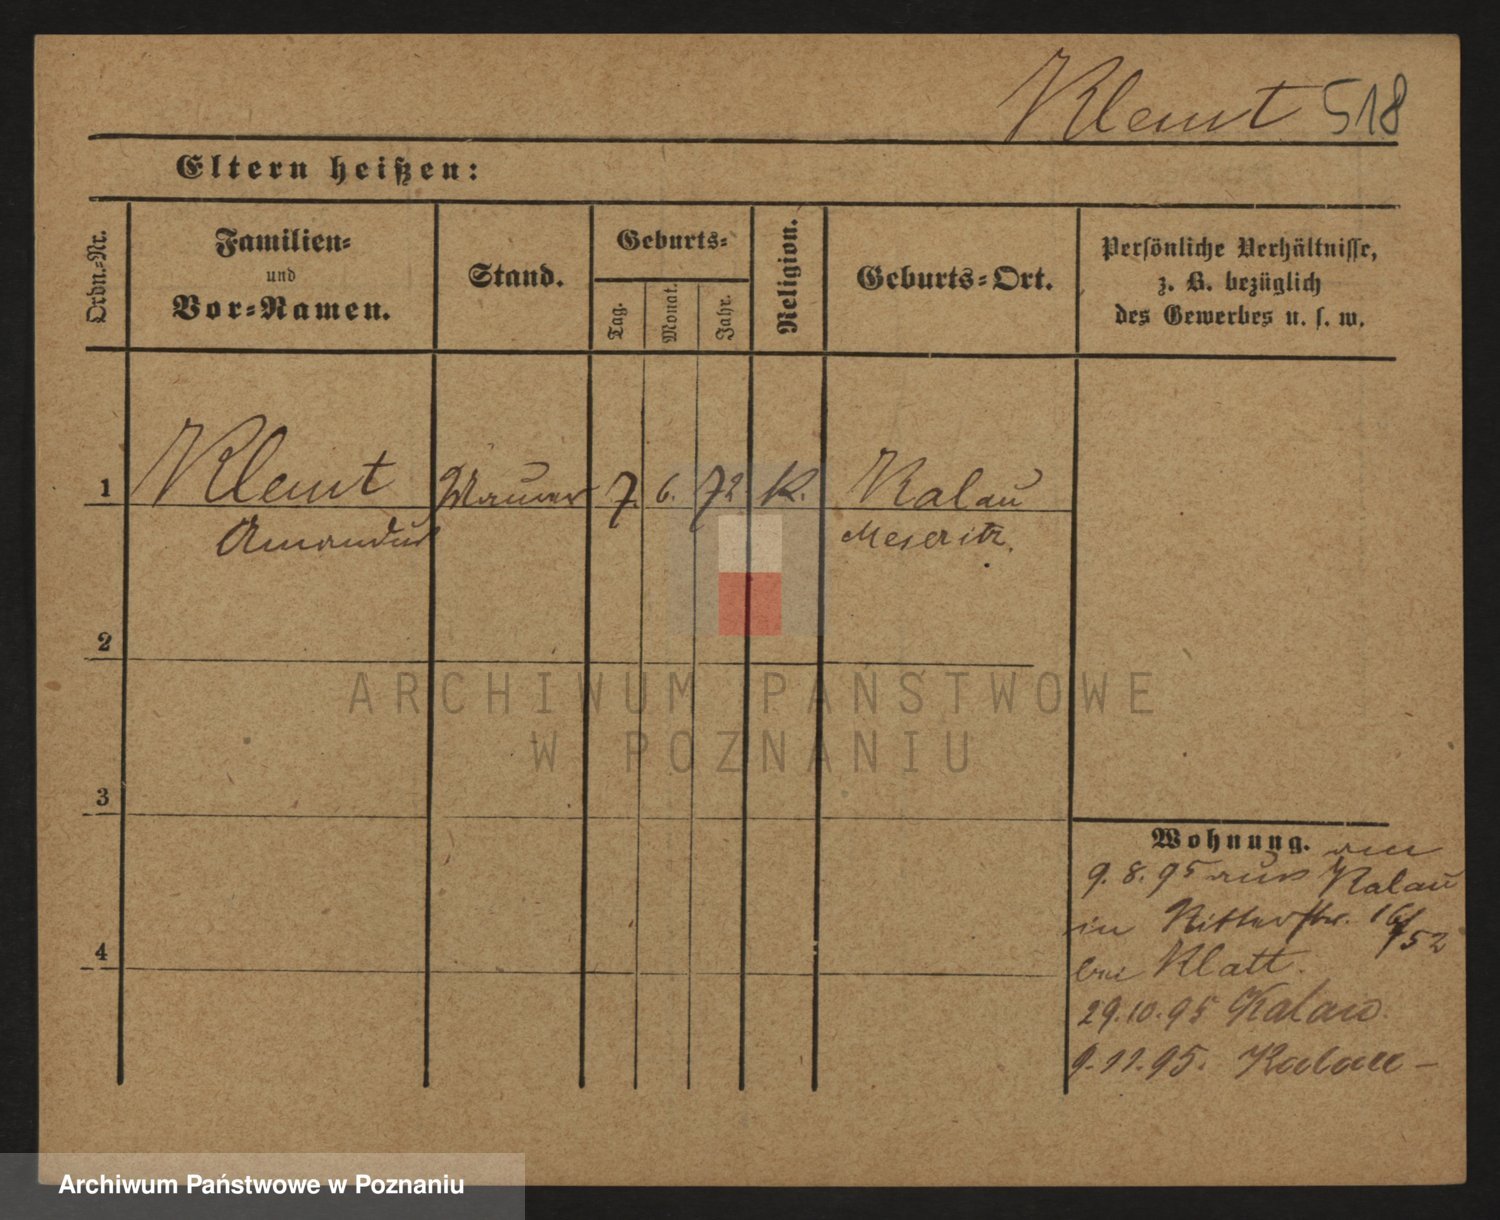 Klemt 518
Eltern heißen:
Ordn.-Nr.
Familien-
und
Vor-Namen.
Stand.
Geburts-
Tag.
Monat.
Jahr.
Religion.
Geburts-Ort.
Persönliche Verhältnisse,
z. B. bezüglich
des Gewerbes u. s. w.
1 Klemt Maurer 7. 6. 72 K. Kalau
Amandus Meseritz.
2
3
4
Wohnung. am
9.8.95 aus Kalau
in Ritterstr. 16/52
bei Klatt.
29.10.95 Kalau.
9.11.95. Kalau –
ARCHIWUM PAŃSTWOWE
W POZNANIU
Archiwum Państwowe w Poznaniu